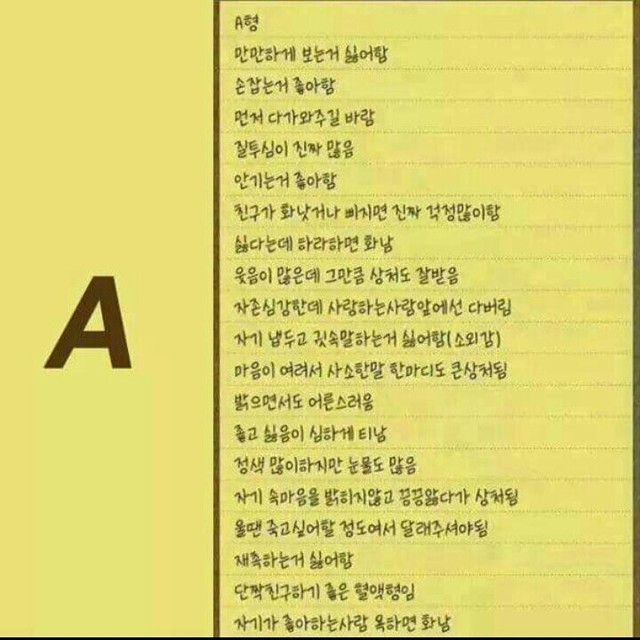 A
A형
만만하게 보는거 싫어함
손잡는거 좋아함
먼저 다가와주길 바람
질투심이 진짜 많음
안기는거 좋아함
친구가 화났거나 삐지면 진짜 걱정많이함
싫다는데 하라하면 화남
웃음이 많은데 그만큼 상처도 잘받음
자존심강한데 사랑하는사람앞에선 다버림
자기 냅두고 귓속말하는거 싫어함(소외감)
마음이 여려서 사소한말 한마디도 큰상처됨
밝으면서도 어른스러움
좋고 싫음이 심하게 티남
정색 많이하지만 눈물도 많음
자기 속마음을 밝히지않고 끙끙앓다가 상처됨
울땐 죽고싶어할 정도여서 달래주셔야됨
재촉하는거 싫어함
단짝친구하기 좋은 혈액형임
자기가 좋아하는사람 욕하면 화남